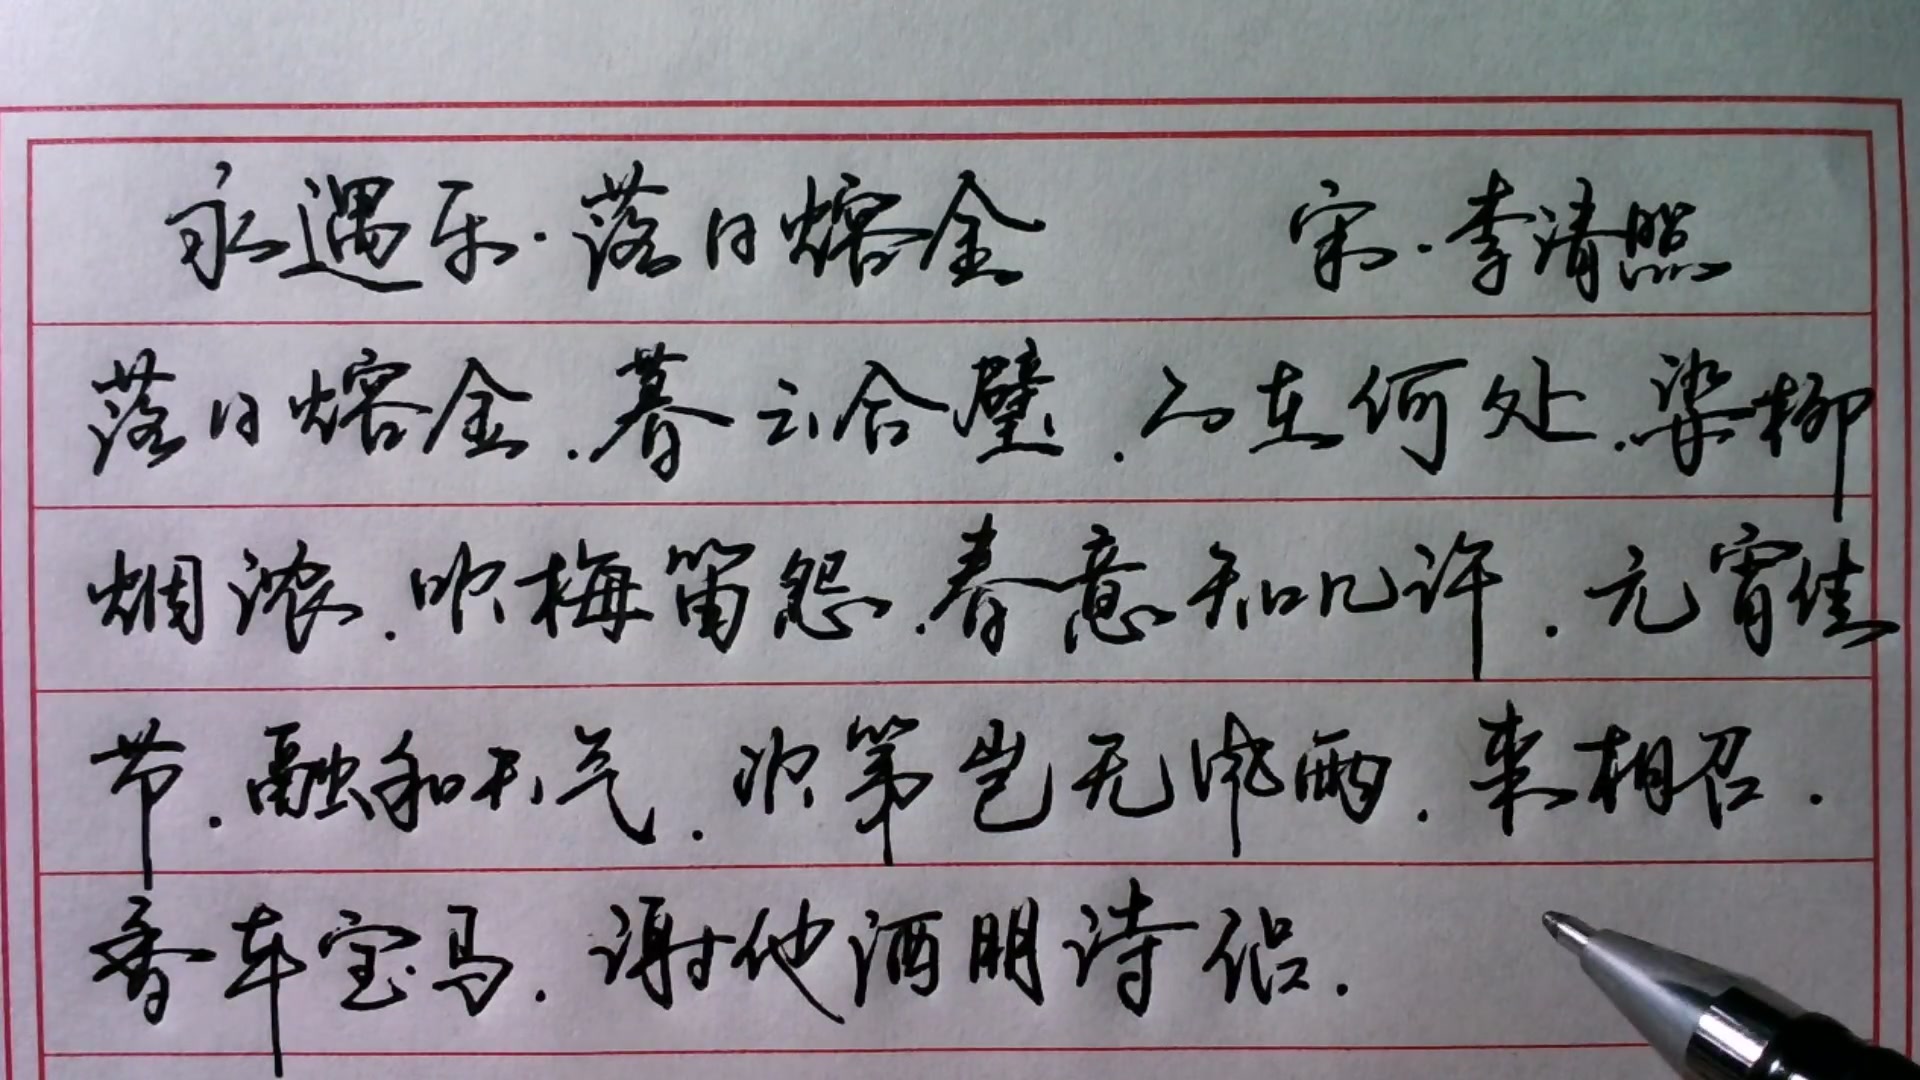 永遇乐·落日熔金 宋·李清照
落日熔金.暮云合璧.人在何处.染柳
烟浓.吹梅笛怨.春意知几许.元宵佳
节.融和天气.次第岂无风雨.来相召.
香车宝马.谢他酒朋诗侣.